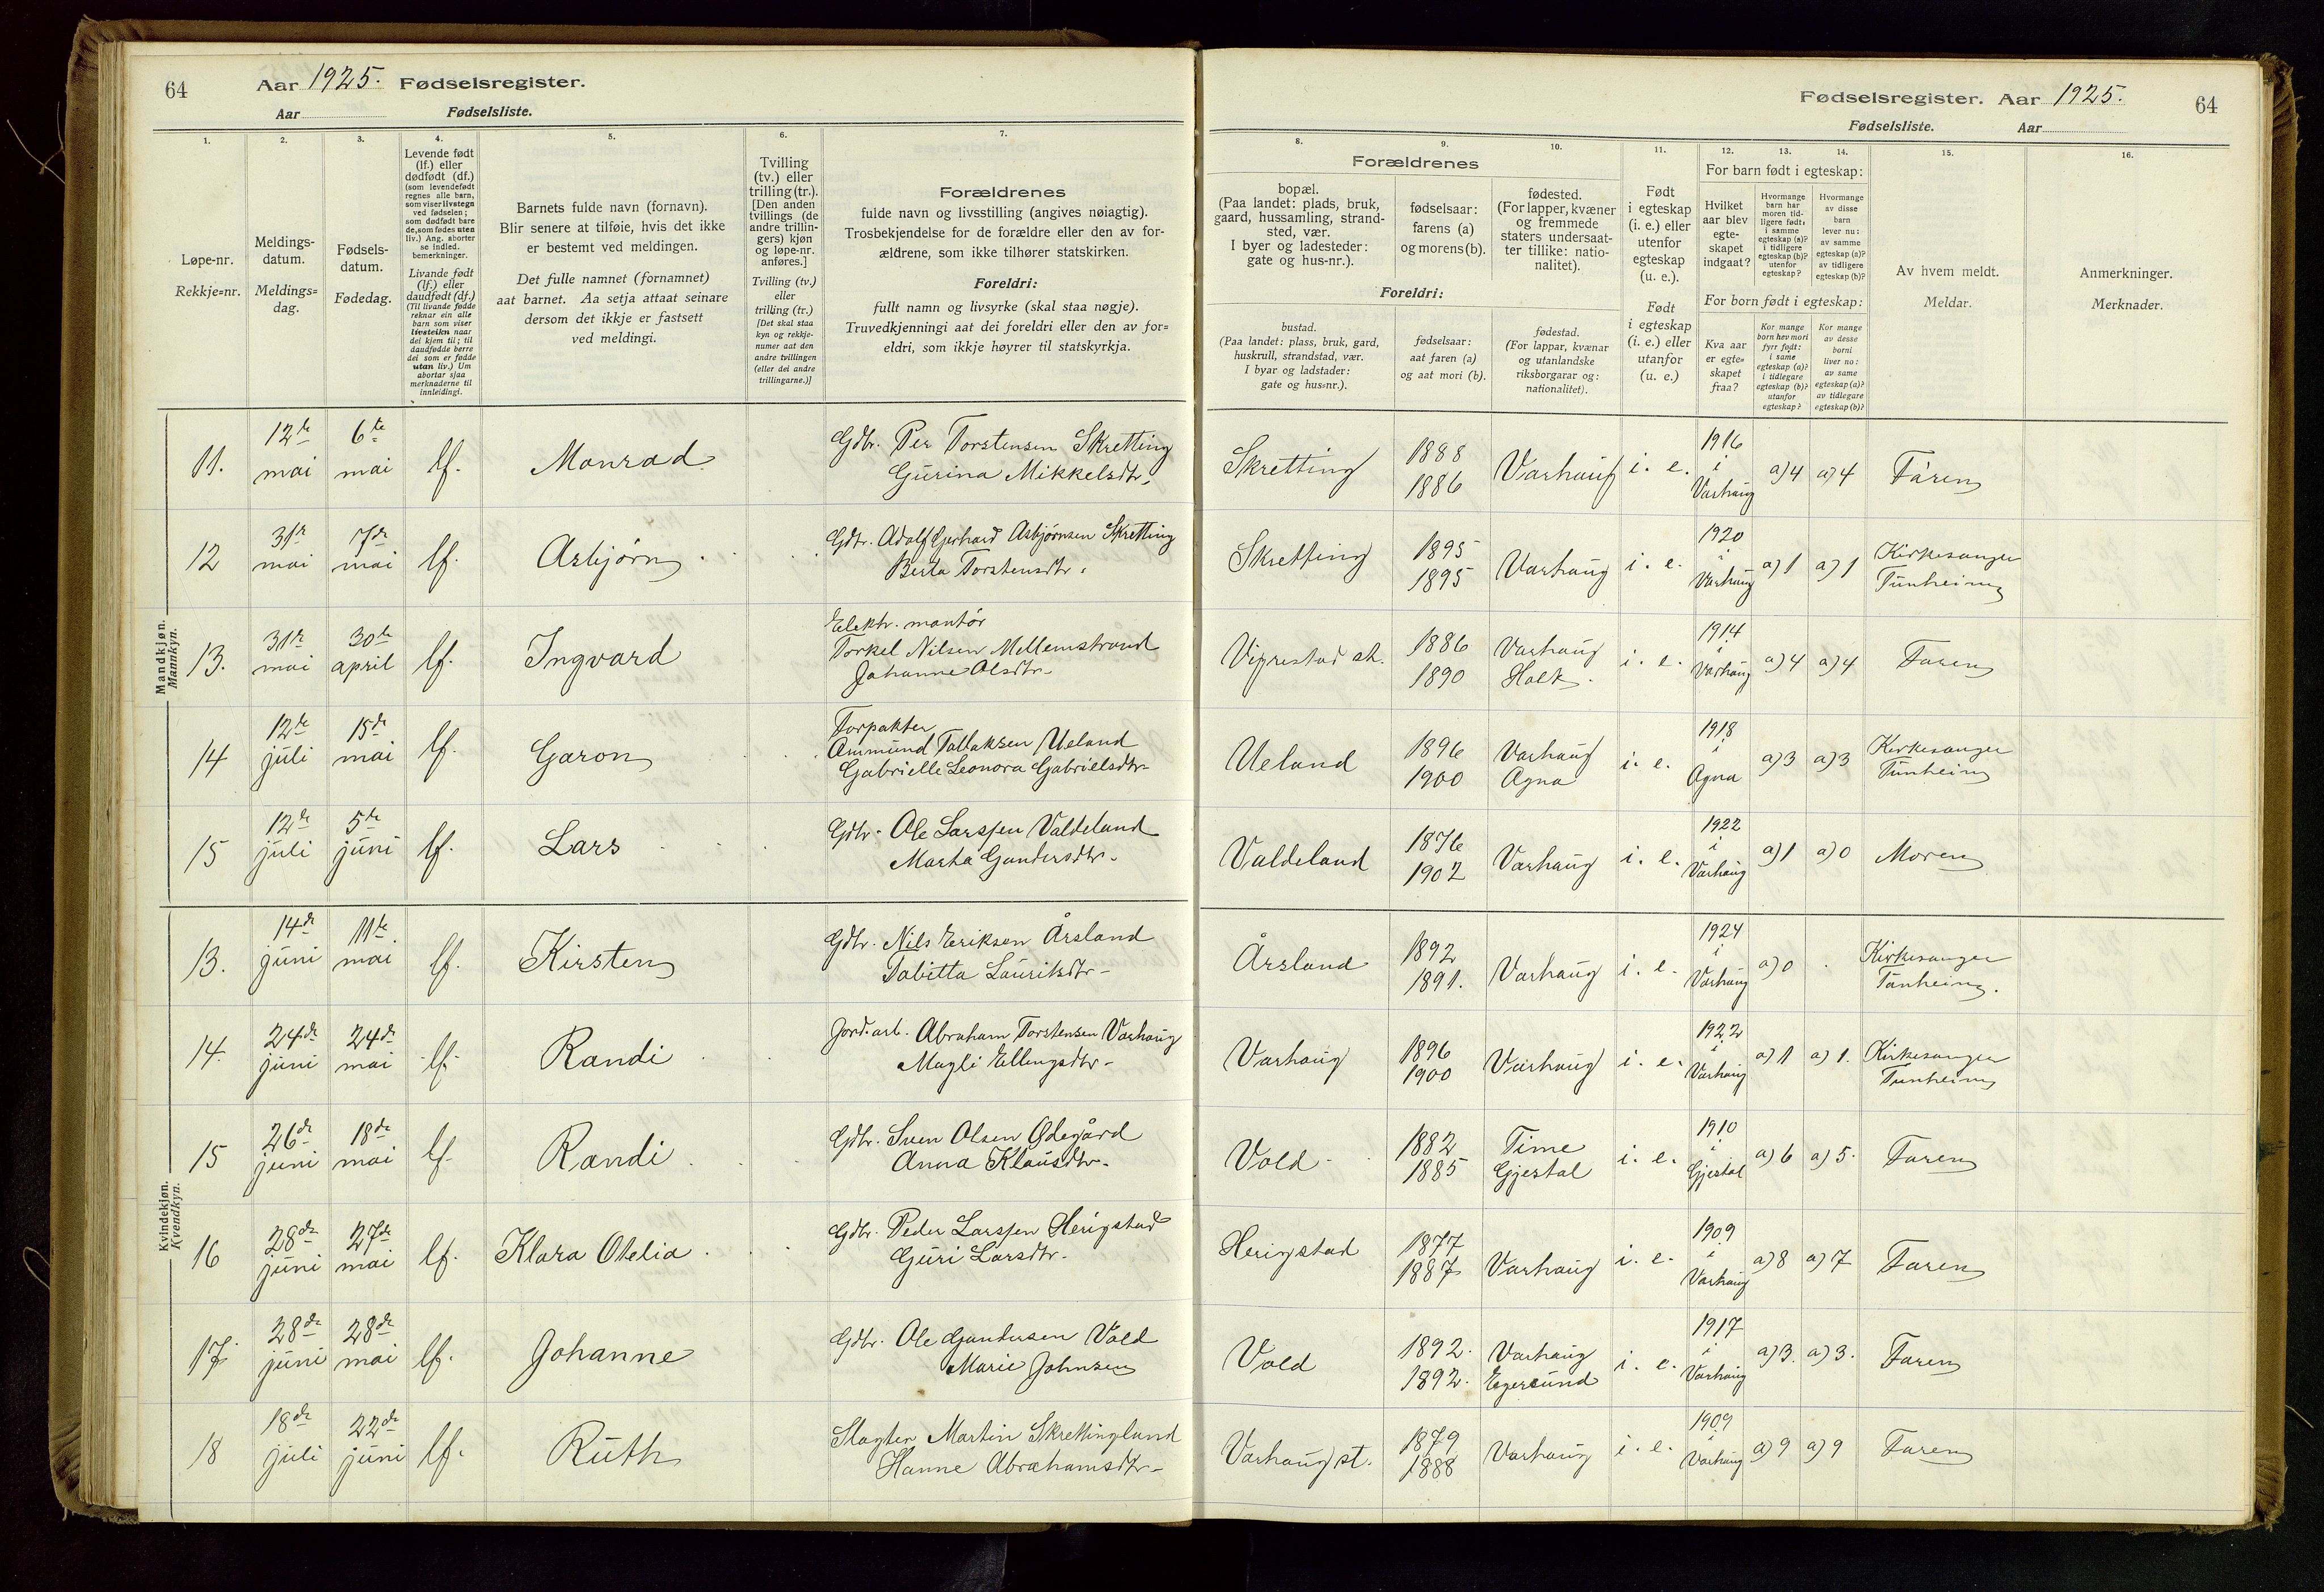 64
Aar 1925. Fødselsregister.
Aar
Fødselsliste.
1.
Løpe-nr.
Rekkje=nr.
2.
Meldings-
datum.
Meldings=
dag.
3.
Fødsels-
datum.
Fødedag.
4.
Levende født
(lf.) eller
dødfødt (df.)
(som levendefødt
regnes alle barn,
som viser livstegn
ved fødselen;
som dødfødt bare
de, som fødes uten
liv.) Ang. aborter
se indled.
bemerkninger.
Livande født
(lf.) eller
daudfødt (df.)
(Til livande fødde
reknar ein alle
barn som viser
livsteikn naar
dei kjem til; til
daudfødde berre
dei som er fødde
utan liv.) Um
abortar sjaa
merknaderne til
innleidingi.
5.
Barnets fulde navn (fornavn).
Blir senere at tilføie, hvis det ikke
er bestemt ved meldingen.
Det fulle namnet (fornamnet)
aat barnet. Aa setja attaat seinare
dersom det ikkje er fastsett
ved meldingi.
6.
Tvilling
(tv.) eller
trilling (tr.).
[Den anden
tvillings (de
andre trillin-
gers) kjøn
og løpe-nr.
anføres.]
Tvilling (tv.)
eller
trilling (tr.)
[Det skal staa
kyn og rekkje-
numer aat den
andre tvillingen
(eller dei andre
trillingarne.)]
7.
Forældrenes
fulde navn og livsstilling (angives nøiagtig).
Trosbekjendelse for de forældre eller den av for-
ældrene, som ikke tilhører statskirken.
Foreldri:
fullt namn og livsyrke (skal staa nøgje).
Truvedkjenningi aat dei foreldri eller den av for=
eldri, som ikkje høyrer til statskyrkja.
Fødselsregister. Aar 1925.
64
Fødselsliste.
Aar
8.
Forældrenes
bopæl.
(Paa landet: plads, bruk,
gaard, hussamling, strand-
sted, vær.
I byer og ladesteder:
gate og hus-nr.).
Foreldri:
bustad.
(Paa landet: plass, bruk, gard,
huskrull, strandstad, vær.
I byar og ladstader:
gate og hus=nr.).
9.
fødselsaar:
farens (a)
og morens (b).
fødselsaar:
aat faren (a)
og aat mori (b).
10.
fødested.
(For lapper, kvæner
og fremmede
staters undersaat-
ter tillike: natio-
nalitet).
fødestad.
(For lappar, kvænar
og utanlandske
riksborgarar og:
nationalitet).
11.
Født
i egteskap
(i. e.) eller
utenfor
egteskap
(u. e.).
Født
i egteskap
(i. e.) eller
utanfor
(u. e.)
12.
For barn født i egteskap:
Hvilket
aar blev
egte-
skapet
indgaat?
For born født i egteskap:
Kva aar
er egte=
skapet
fraa?
13.
Hvormange
barn har
moren tid-
ligere født:
i samme
egteskap (a)?
i tidligere
egteskap (b)?
utenfor
egteskap?
Kor mange
born hev mori
fyrr født:
i same
egteskap (a)?
i tidlegare
egteskap (b)?
utanfor
egteskap?
14.
Hvormange
av disse
barn
lever nu:
av samme
egteskap (a)?
av tidligere
egteskap (b)?
Kor mange
av desse
borni
liver no:
av same
egteskap (a)?
av tidlegare
egteskap (b)?
15.
Av hvem meldt.
Meldar.
16.
Anmerkninger.
Merknader.
Mandkjøn.
Mannkyn.
11. 12te mai 6te mai lf. Monrad
Gdbr. Per Torstensen Skretting
Gurina Mikkelsdtr.
Skretting 1888 1886 Varhaug i. e. 1916 i Varhaug a) 4 a) 4 Faren
12 31te mai 7de mai lf. Asbjørn
Gdbr. Adolf Gerhard Asbjørnsen Skretting
Berta Torstensdtr.
Skretting 1895 1895 Varhaug i. e. 1920 i Varhaug a) 1 a) 1 Kirkesanger Tunheim
13. 31te mai 30te april lf. Ingvard
Elektr. montør
Torkel Nilsen Mellemstrand
Johanne Olsdtr.
Vigrestad st. 1886 1890 Varhaug i. e. 1914 i Varhaug a) 4 a) 4 Faren
14 12te juli 15de mai lf. Garon
Forpakter
Ommund Tollaksen Ueland
Gabrielle Leonora Gabrielsdtr.
Ueland 1896 1900 Varhaug Ogna i. e. 1918 i Ogna a) 3 a) 3 Kirkesanger Tunheim
15 12te juli 5te juni lf. Lars
Gdbr. Ole Larssen Valdeland
Marta Gundersdtr.
Valdeland 1876 1902 Varhaug i. e. 1922 i Varhaug a) 1 a) 0 Moren
Kvindekjøn.
Kvendkyn.
13. 14de juni 11te mai lf. Kirsten
Gdbr. Nils Eriksen Årsland
Tabitta Lauritsdtr.
Årsland 1892 1891. Varhaug i. e. 1924 i Varhaug a) 0 Kirkesanger Tunheim.
14. 24de juni 24de mai lf. Randi
Jord.arb. Abraham Torstensen Varhaug
Magli Ellingsdtr.
Varhaug 1896 1900 Varhaug i. e. 1922 i Varhaug a) 1 a) 1. Kirkesanger Tunheim
15 26de juni 18de mai lf. Randi
Gdbr. Sven Olsen Ødegård
Anna Klausdtr.
Vold 1882 1885 Time Gjestal i. e. 1910 i Gjestal a) 6 a) 5. Faren
16 28de juni 27de mai lf. Klara Otelia
Gdbr. Peder Larssen Herigstad
Guri Larsdtr.
Herigstad 1877 1887 Varhaug i. e. 1909 i Varhaug a) 8 a) 7 Faren
17. 28de juni 28de mai lf. Johanne
Gdbr. Ole Gundersen Vold
Marie Johnsen
Vold 1892. 1892. Varhaug Egersund i. e. 1917 i Varhaug a) 3. a) 3. Faren
18 18de juli 22de juni lf. Ruth
Slagter Martin Skrettingland
Hanne Abrahamsdtr.
Varhaug st. 1879 1888 Varhaug i. e. 1909 i Varhaug a) 9 a) 9 Faren